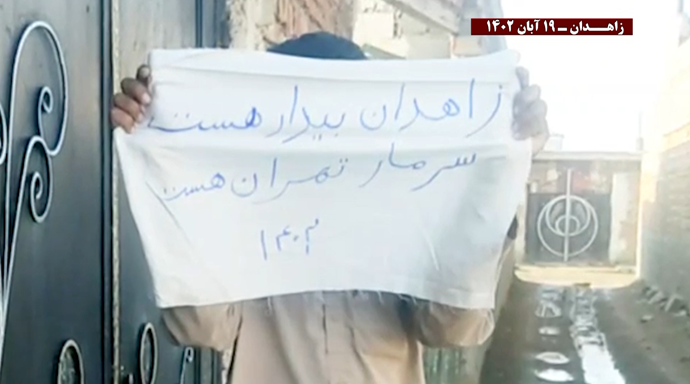 زاهـــدان ــ ۱۹ آبان ۱۴۰۲
زاهدان بیدار هست
سرمار تهران هست
۱۴۰۲